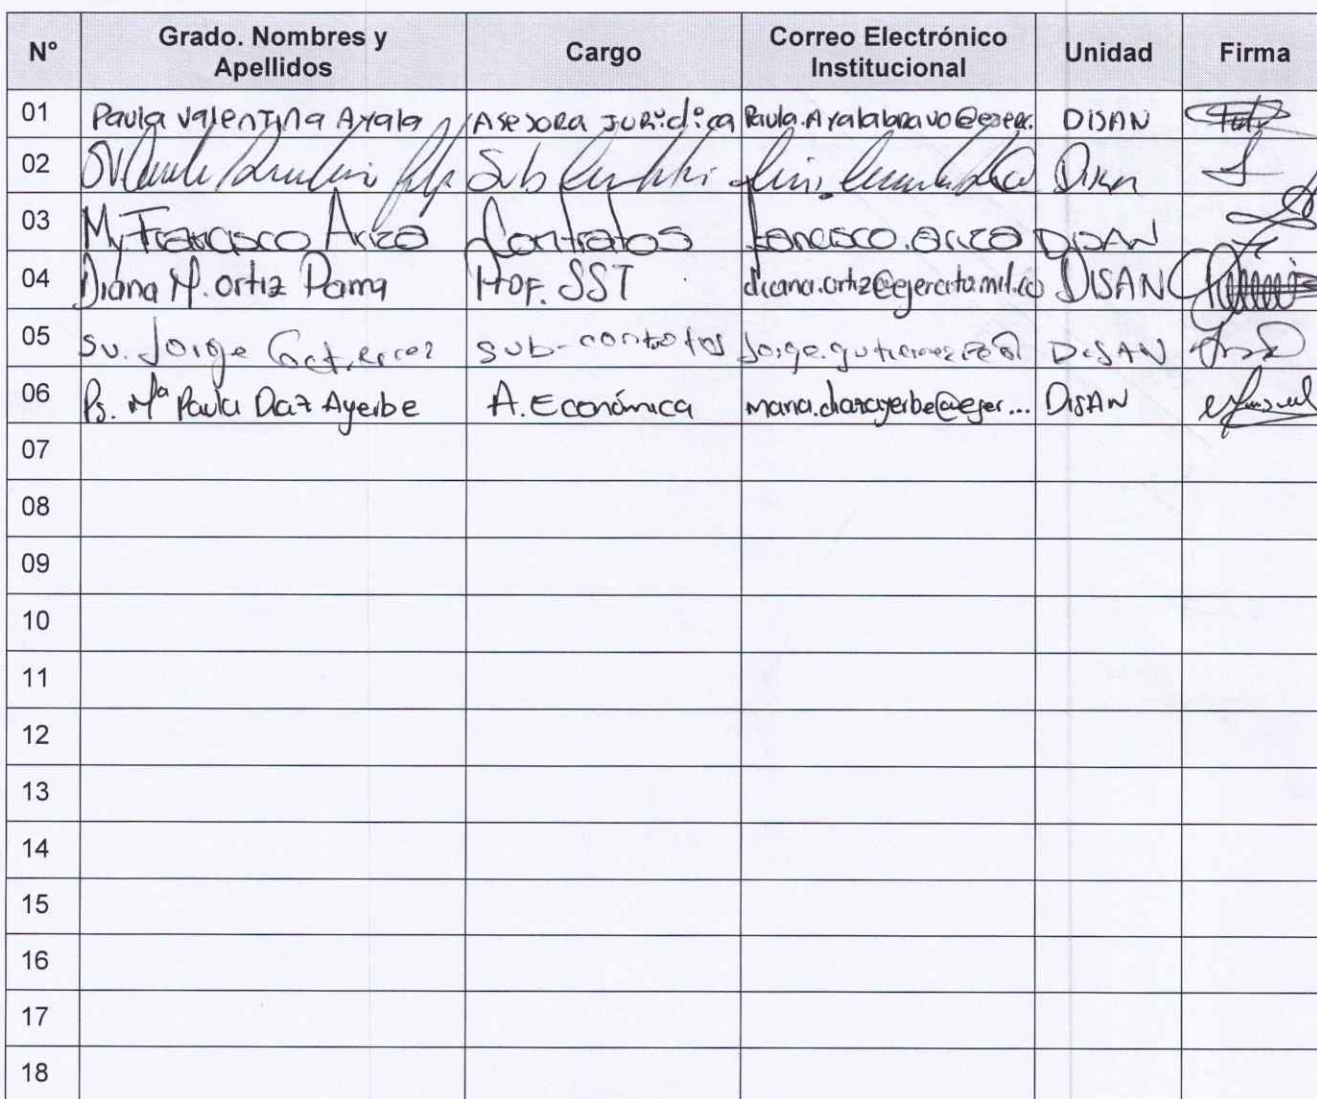 N° Grado. Nombres y Apellidos Cargo Correo Electrónico Institucional Unidad Firma
01 Paula Valentina Ayala Asesora Jurídica Paula.Ayalabravo@ejer. DISAN
02 Sub Disan
03 My. Francisco Ariza Contratos francisco.ariza DISAN
04 Diana M. Ortiz Parra Prof. SST diana.ortiz@ejercito.mil.co DISAN
05 SV. Jorge Gutierrez sub-contratos DISAN
06 Ps. Mª Paula Diaz Ayerbe A. Económica maria.diazayerbe@ejer... DISAN
07
08
09
10
11
12
13
14
15
16
17
18